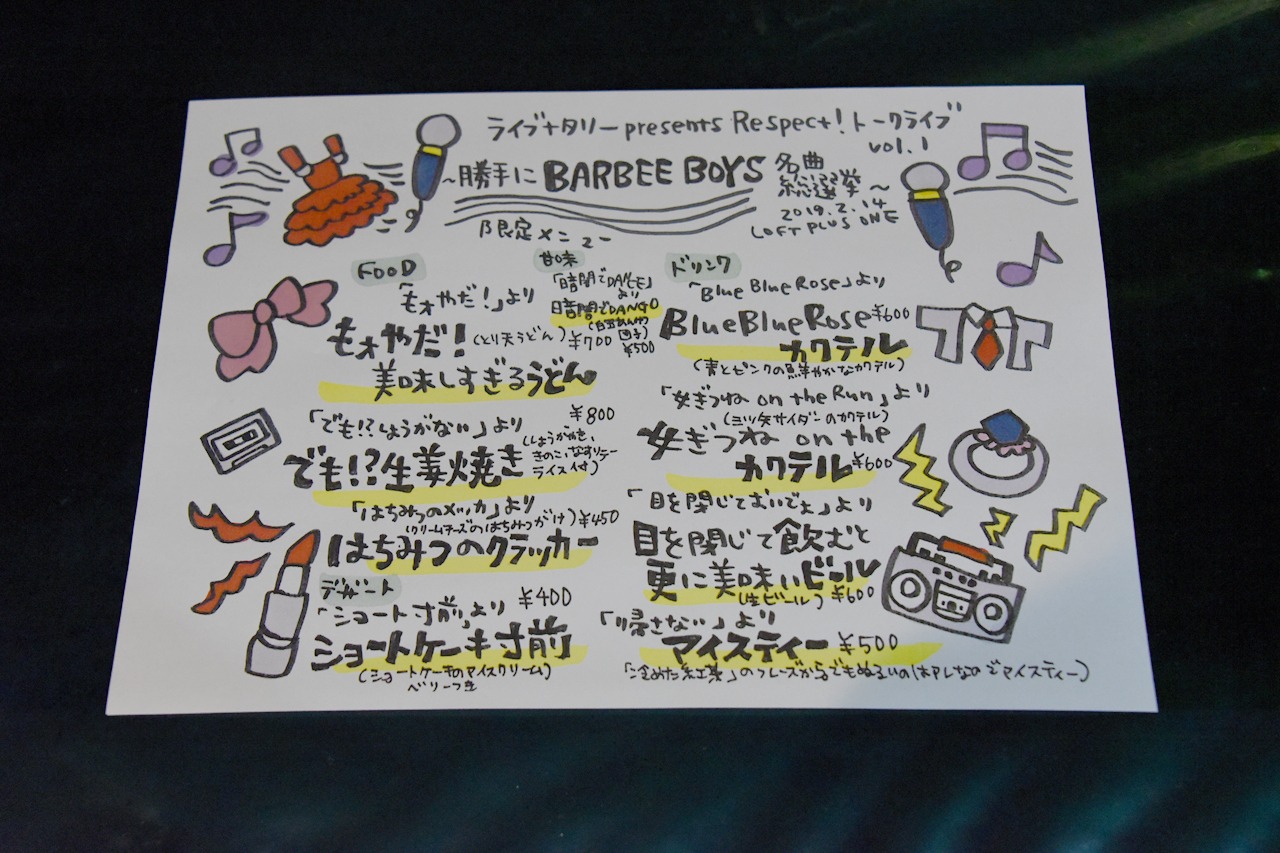 ライブナタリー presents Respect! トークライブ
vol.1
~勝手に BARBEE BOYS 名曲
総選挙~
2019.2.14
LOFT PLUS ONE
限定メニュー
FOOD
「もォやだ!」より
もォやだ!(とり天うどん)¥700
美味しすぎるうどん
「でも!?しょうがない」より ¥800
でも!?生姜焼き
(しょうがやき、
きのこ、なすソテー
ライス付)
「はちみつのメッカ」より
(クリームチーズのはちみつがけ)¥450
はちみつのクラッカー
デザート
「ショート寸前」より ¥400
ショートケーキ寸前
(ショートケーキのアイスクリーム)
ベリーつき
甘味
「時間でDANCE」
より
時間でDANGO
団子
¥500
ドリンク
「Blue Blue Rose」より
Blue Blue Rose ¥600
カクテル
(青とピンクの鮮やかなカクテル)
「女ぎつね on the Run」より
(三ツ矢サイダーのカクテル)
女ぎつね on the
カクテル ¥600
「目を閉じておいでよ」より
目を閉じて飲むと
更に美味いビール
(生ビール)¥600
「帰さない」より
マイスティー ¥500
「冷めた紅茶」のフレーズからでもぬるいのはアレなのでアイスティー)